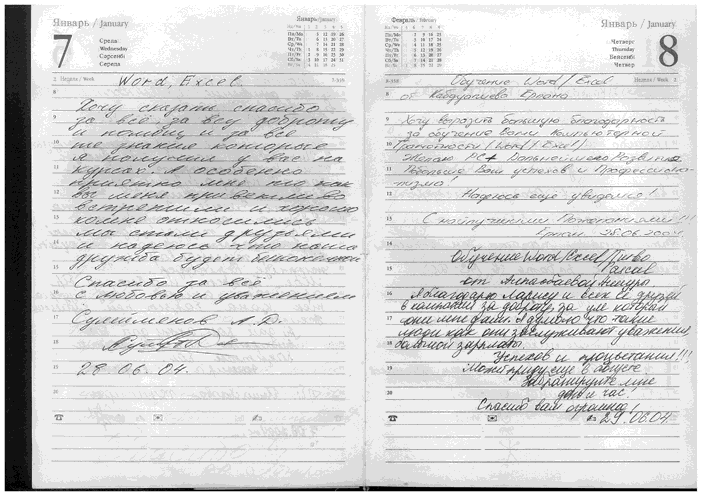 Январь / January
7
Среда
Wednesday
Сәрсенбі
Середа
Январь/January
2 Неделя / Week
Word, Excel
Хочу сказать спасибо
за всё за всу доброту
и помощь и за все
те знания которые
я получил у вас на
курсах. А особенно
приятно мне что как
вы меня приветливо
встретили и хорошо
ко мне относились
мы стали друзьями
и надеюсь что наша
дружба будет бесконечной
Спасибо за всё
с любовью и уважением
Сулейменов А. Д.
28 06. 04.
Февраль / February
Январь / January
8
Четверг
Thursday
Бейсенбі
Четвер
Неделя / Week 2
Обучение Word / Excel
от
Хочу выразить большую благодарность
за обучение Вами компьютерной
Грамотности (Word / Excel)
Желаю РС+ Дальнейшего Развития
Побольше Вам успехов и Профессиона-
лизма!
Надеюсь ещё увидемся!
С наилучшими Пожеланиями!!!
Обучение Word/Excel/Пиво
от
Я благодарю Ларису и всех и друзей
в компании за доброту за ум который
они мне дали. Я думаю что такие
люди как они заслуживают уважения,
большой зарплаты.
Успехов и процветания!!!
Может приду еще в августе
Забронируйте мне
дни и час.
Спасибо вам огромное!
29.06.04